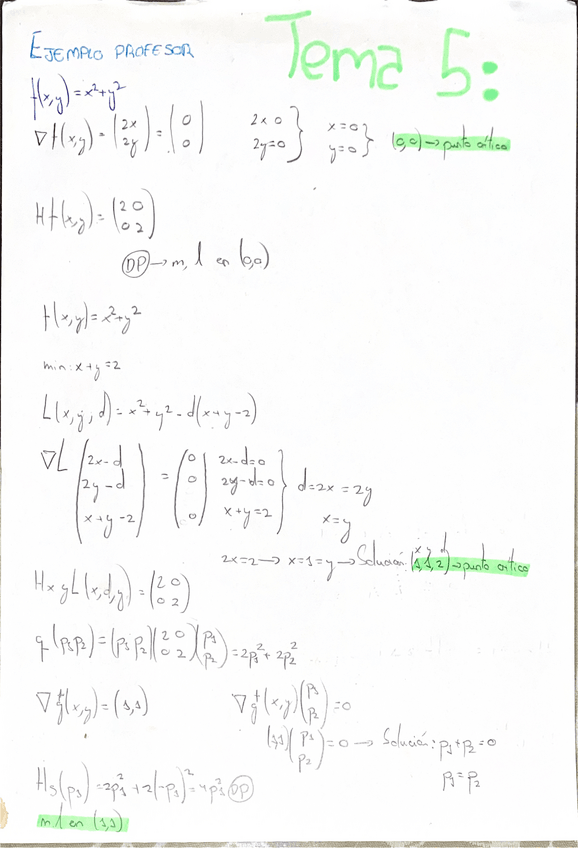 EJEMPLO PROFESOR
Tema 5:
f(x,y)=x²+y²
∇f(x,y)=(2x 2y)=(0 0) 2x 0 2y=0} x=0 y=0} (0,0)→punto crítico
Hf(x,y)=(2 0 0 2)
DP→m, l en (0,0)
f(x,y)=x²+y²
min: x+y=2
L(x,y,d)=x²+y²-d(x+y-2)
∇L(2x-d 2y-d x+y-2)=(0 0 0) 2x-d=0 2y-d=0 x+y=2} d=2x=2y
x=y
2x=2→x=1=y→Solución: (1,1,2)→punto crítico
x y d
HxyL(x,d,y)=(2 0 0 2)
q(p₁p₂)=(p₁p₂)(2 0 0 2)(p₁ p₂)=2p₁²+2p₂²
∇g^t(x,y)=(1,1) ∇g^t(x,y)(p₁ p₂)=0
(1,1)(p₁ p₂)=0→Solución: p₁+p₂=0
p₁=p₂
Hs(p₁)=2p₁²+2(-p₁)²=4p₁² DP
m l en (1,1)